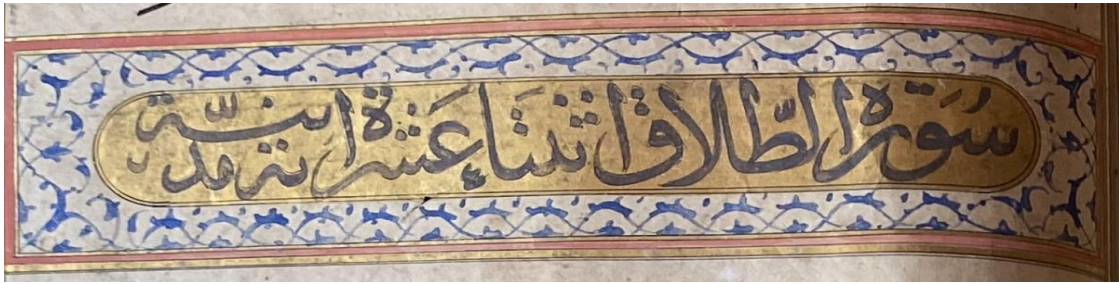 سُوَرة الطّلاق اثنتَا عَشَرة اية مدنيّة